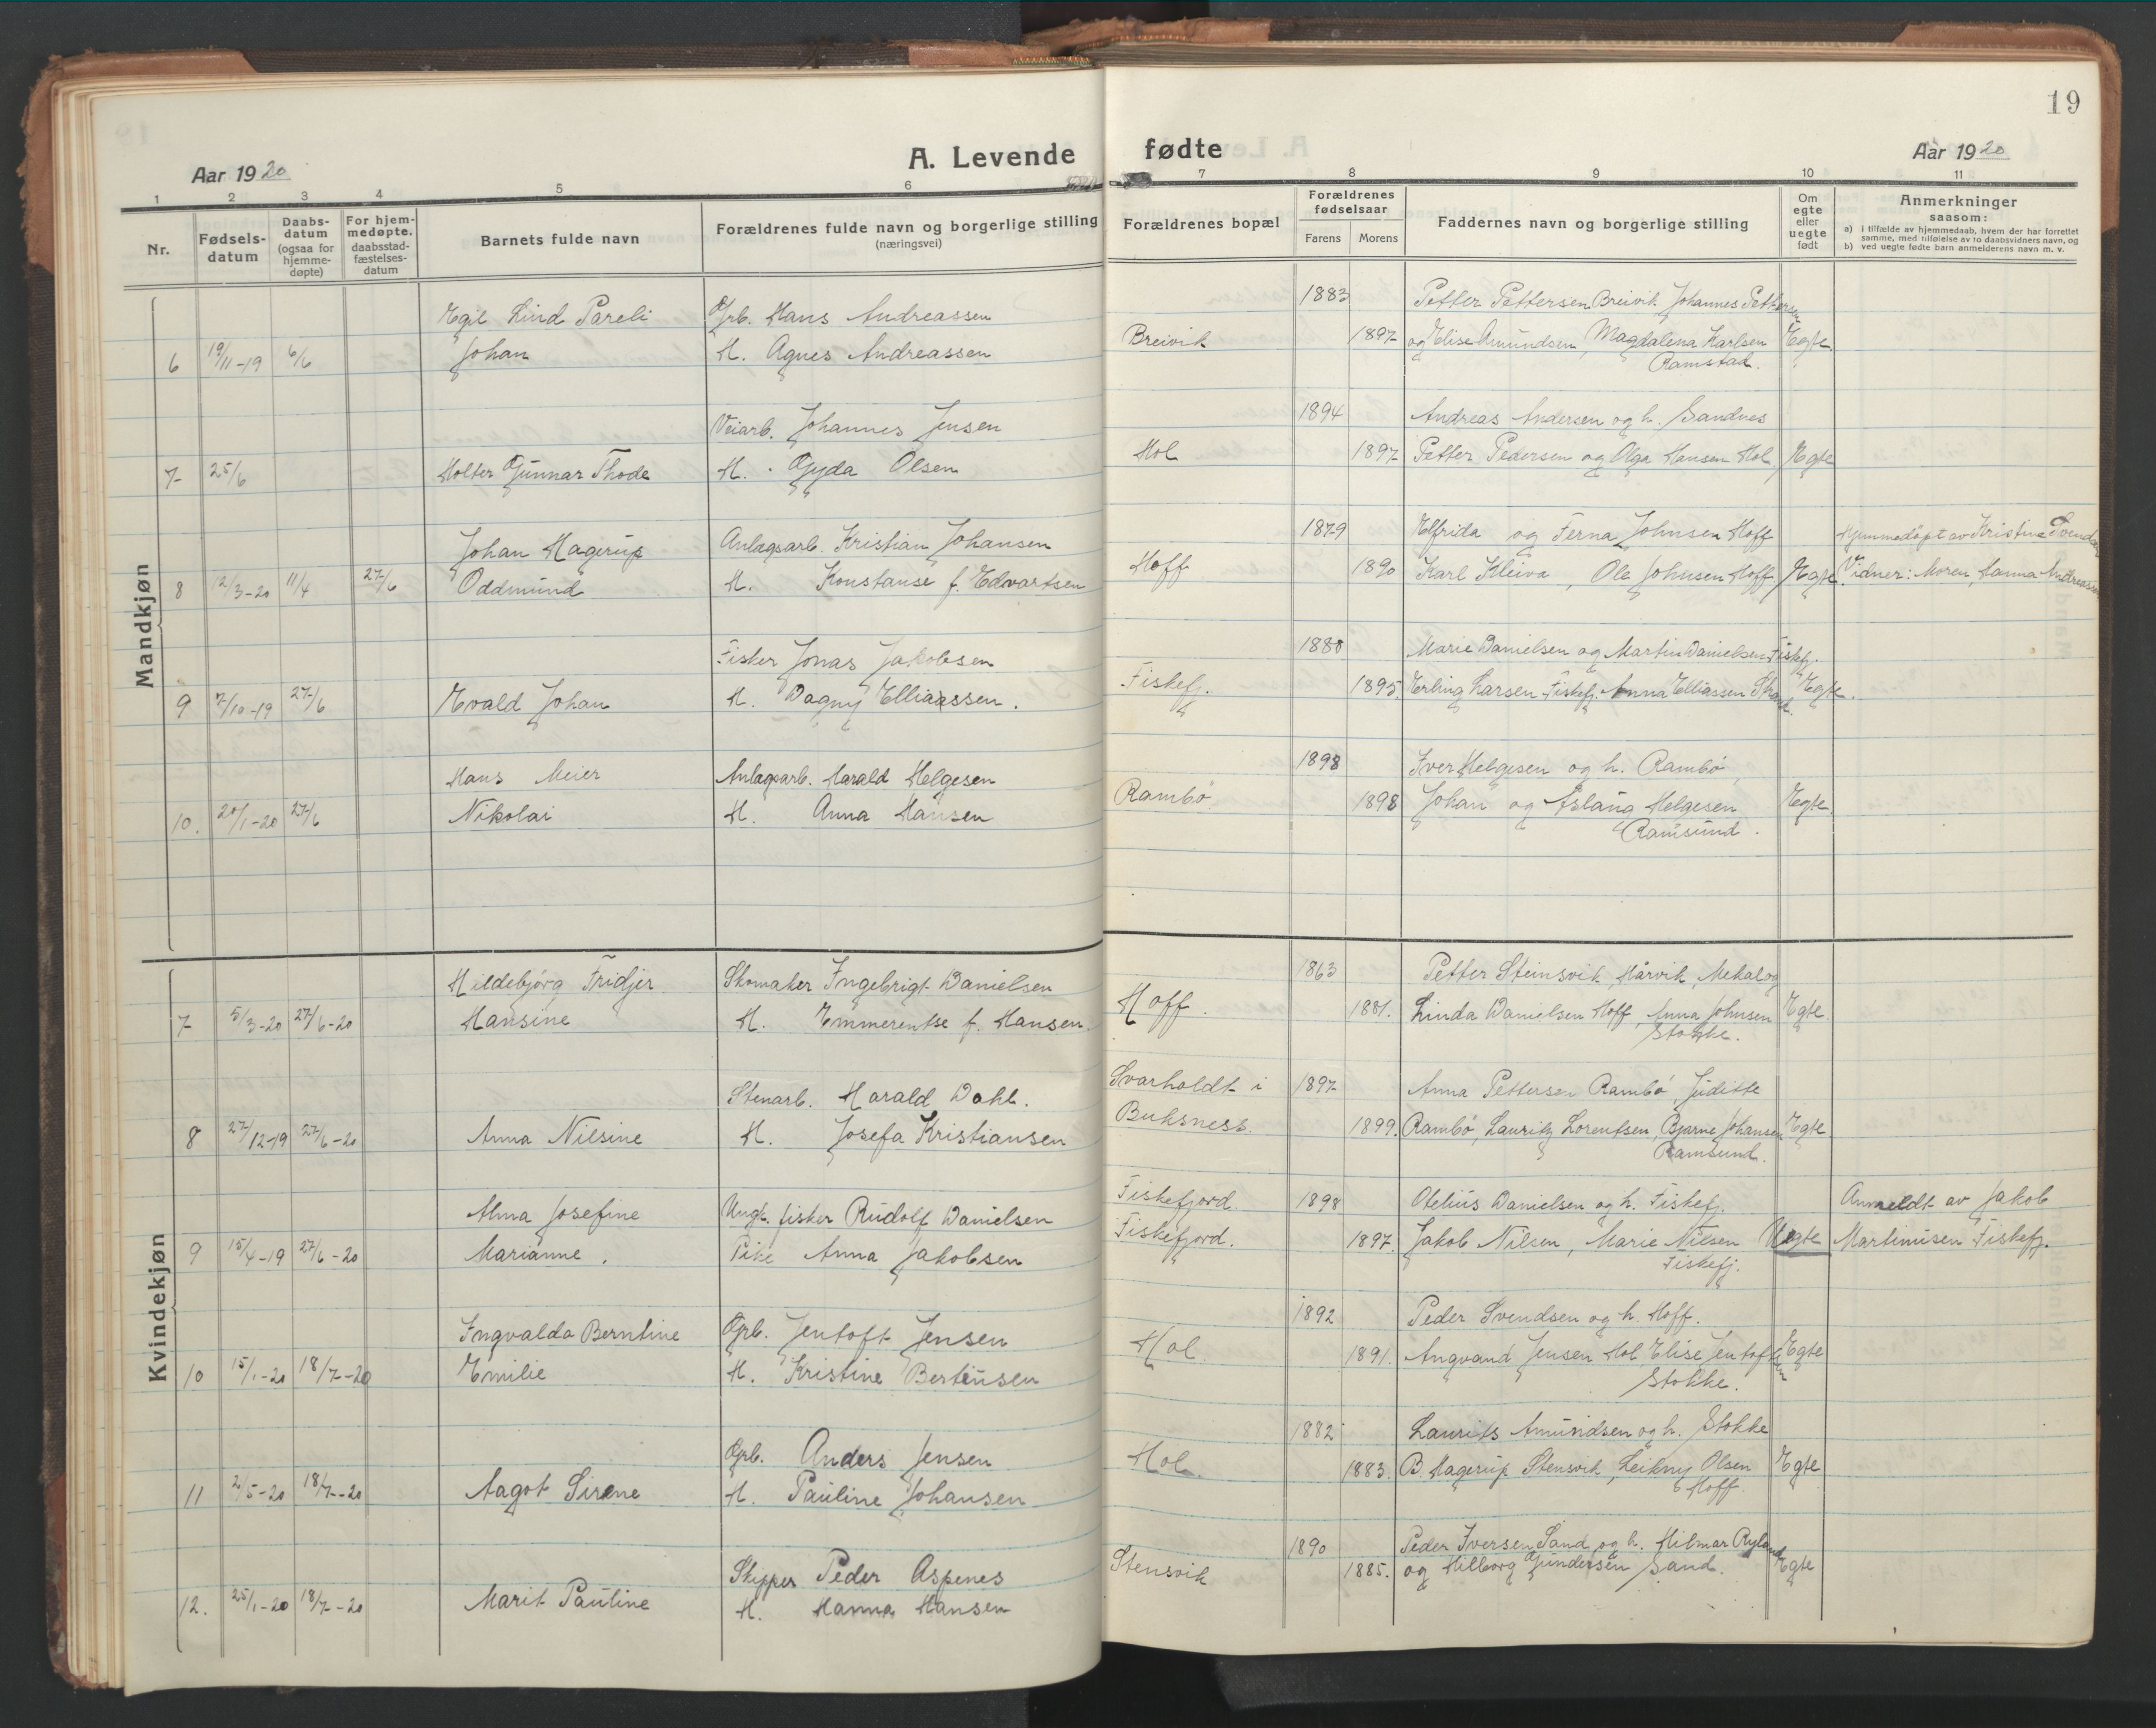 19
Aar 1920
A. Levende fødte
Aar 1920
1 2 3 4 5 6 7 8 9 10 11
Nr.
Fødsels-datum
Daabs-datum (ogsaa for hjemme-døpte)
For hjem-medøpte. daabsstad-fæstelses-datum
Barnets fulde navn
Forældrenes fulde navn og borgerlige stilling (næringsvei)
Forældrenes bopæl
Forældrenes fødselsaar
Farens Morens
Faddernes navn og borgerlige stilling
Om egte eller uegte født
Anmerkninger
saasom:
a) i tilfælde av hjemmedaab, hvem der har forrettet samme, med tilføielse av to daabsvidners navn, og
b) ved uegte fødte barn anmelderens navn m. v.
Mandkjøn
Egil Lind Pareli Grb. Hans Andreassen 1883 Petter Pettersen Breivik Johannes Pettersen
6 19/11-19 6/6 Johan H. Agnes Andreassen Breivik 1897 og Elise Amundsen, Magdalena Karlsen Egte
Ramstad.
Veiarb. Johannes Jensen 1894 Andreas Andersen og h. Sandnes
7 25/6 Holter Gunnar Thode H. Gyda Olsen Hol 1897 Petter Pedersen og Olga Hansen Hol Egte
Johan Hagerup Anlægsarb. Kristian Johansen 1879 Elfrida og Ferna Johnsen Hoff Hjemmedøpt av Kristine Svendsen
8 12/3-20 11/4 27/6 Oddmund H. Konstanse f. Edvartsen Hoff 1890 Karl Kleiva, Ole Johnsen Hoff Egte. Vidner: Moren, Hanna Andreassen
Fisker Jonas Jakobsen 1888 Marie Danielsen og Martin Danielsen Fiskefj.
9 7/10-19 27/6 Evald Johan H. Dagny Elliassen. Fiskefj. 1895 Erling Larsen Fiskefj. Anna Elliassen Egte.
Hans Meier Anlægsarb. Harald Helgesen 1898 Iver Helgesen og h. Rambø,
10. 20/1-20 27/6 Nikolai H. Anna Hansen Rambø 1898 Johan og Aslaug Helgesen Egte.
Ramsund.
Kvindekjøn
Hildebjørg Fridjer Skomaker Ingebrigt Danielsen 1863 Petter Steinsvik, Hårvik, Mekal og
7 5/3-20 27/6-20 Hansine H. Emmerentse f. Hansen. Hoff. 1881. Linda Danielsen Hoff, Anna Johnsen Egte.
Stokke.
Stenarb. Harald Dahl. Svarholdt i 1897 Anna Pettersen Rambø, Juditte
8 27/12-19 27/6-20 Anna Nilsine H. Josefa Kristiansen Buksness. 1899. Rambø, Lauritz Lorentsen, Bjarne Johansen Egte
Ramsund.
Alma Josefine Ungk. fisker Rudolf Danielsen Fiskefjord. 1898 Otelius Danielsen og h. Fiskefj. Anmeldt av Jakob
9 15/4-19 27/6-20 Marianne. Pike Anna Jakobsen Fiskefjord. 1897. Jakob Nilsen, Marie Nilsen Uegte Martinusen Fiskefj.
Fiskefj.
Ingvalda Berntine Grb. Jentoft Jensen 1892 Peder Svendsen og h. Hoff.
10 15/1-20 18/7-20 Emilie H. Kristine Berteusen Hol 1891. Angvand Jensen Hol, Elise Jentoftsen Egte
Stokke.
Grb. Anders Jensen 1882 Laurits Amundsen og h. Stokke
11 2/5-20 18/7-20 Aagot Sirene H. Pauline Johansen Hol. 1883. B. Hagerup Stensvik, Leikny Olsen Egte
Hoff.
Skipper Peder Aspenes 1890 Peder Iversen Sand og h. Hilmar Ryland
12. 25/1-20 18/7-20 Marit Pauline H. Hanna Hansen Stensvik 1885. og Hilborg Gundersen Sand. Egte